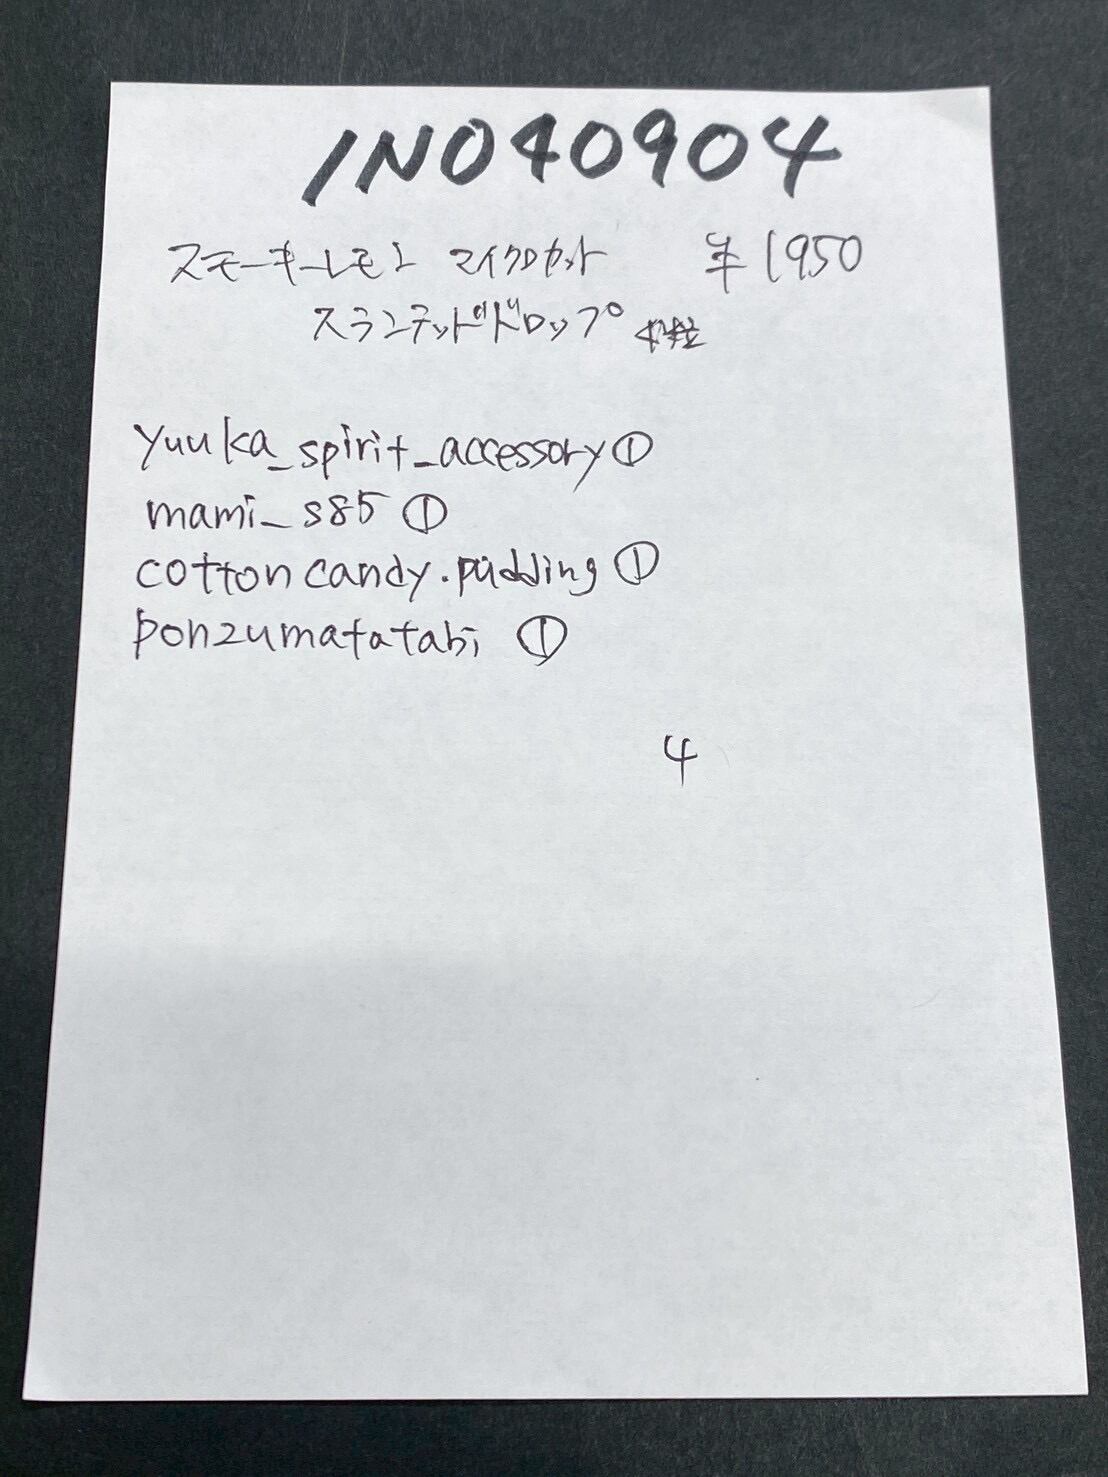 IN040904
スモーキーレモン マイクロカット ¥1950
スランテッドドロップ 4粒
yuuka_spirit_accessory①
mami_s85 ①
cottoncandy.pudding ①
ponzumatatabi ①
4